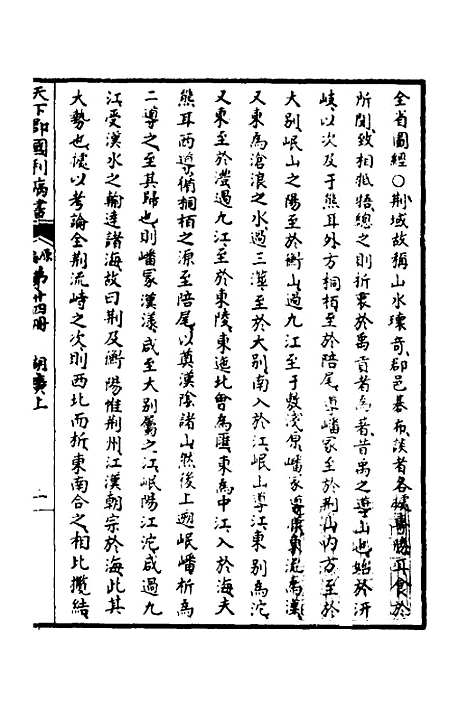 全省圖經〇荆域故稱山水瓌奇郡邑碁布談者各據專勝耳食於
所聞致相牴牾總之則折衷於禹貢者為著昔禹之導山也始於汧
岐以次及于熊耳外方桐栢至於陪尾導嶓冢至於荆山内方至於
大别岷山之陽至於衡山過九江至于敷淺原嶓冢導漾東流為漢
又東為滄浪之水過三澨至於大别南入於江岷山導江東别為沱
又東至於澧過九江至於東陵東迤北會為匯東為中江入於海夫
熊耳西導循桐栢之源至陪尾以奠漢陰諸山然後上遡岷嶓析為
二導之至其歸也則嶓冢漢漾咸至大别屬之江岷陽江沱咸過九
江受漢水之輸達諸海故曰荆及衡陽惟荆州江漢朝宗於海此其
大勢也據以考論全荆流峙之次則西北而折東南合之相比攬結
天下郡國利病書 第廿四册 湖廣上